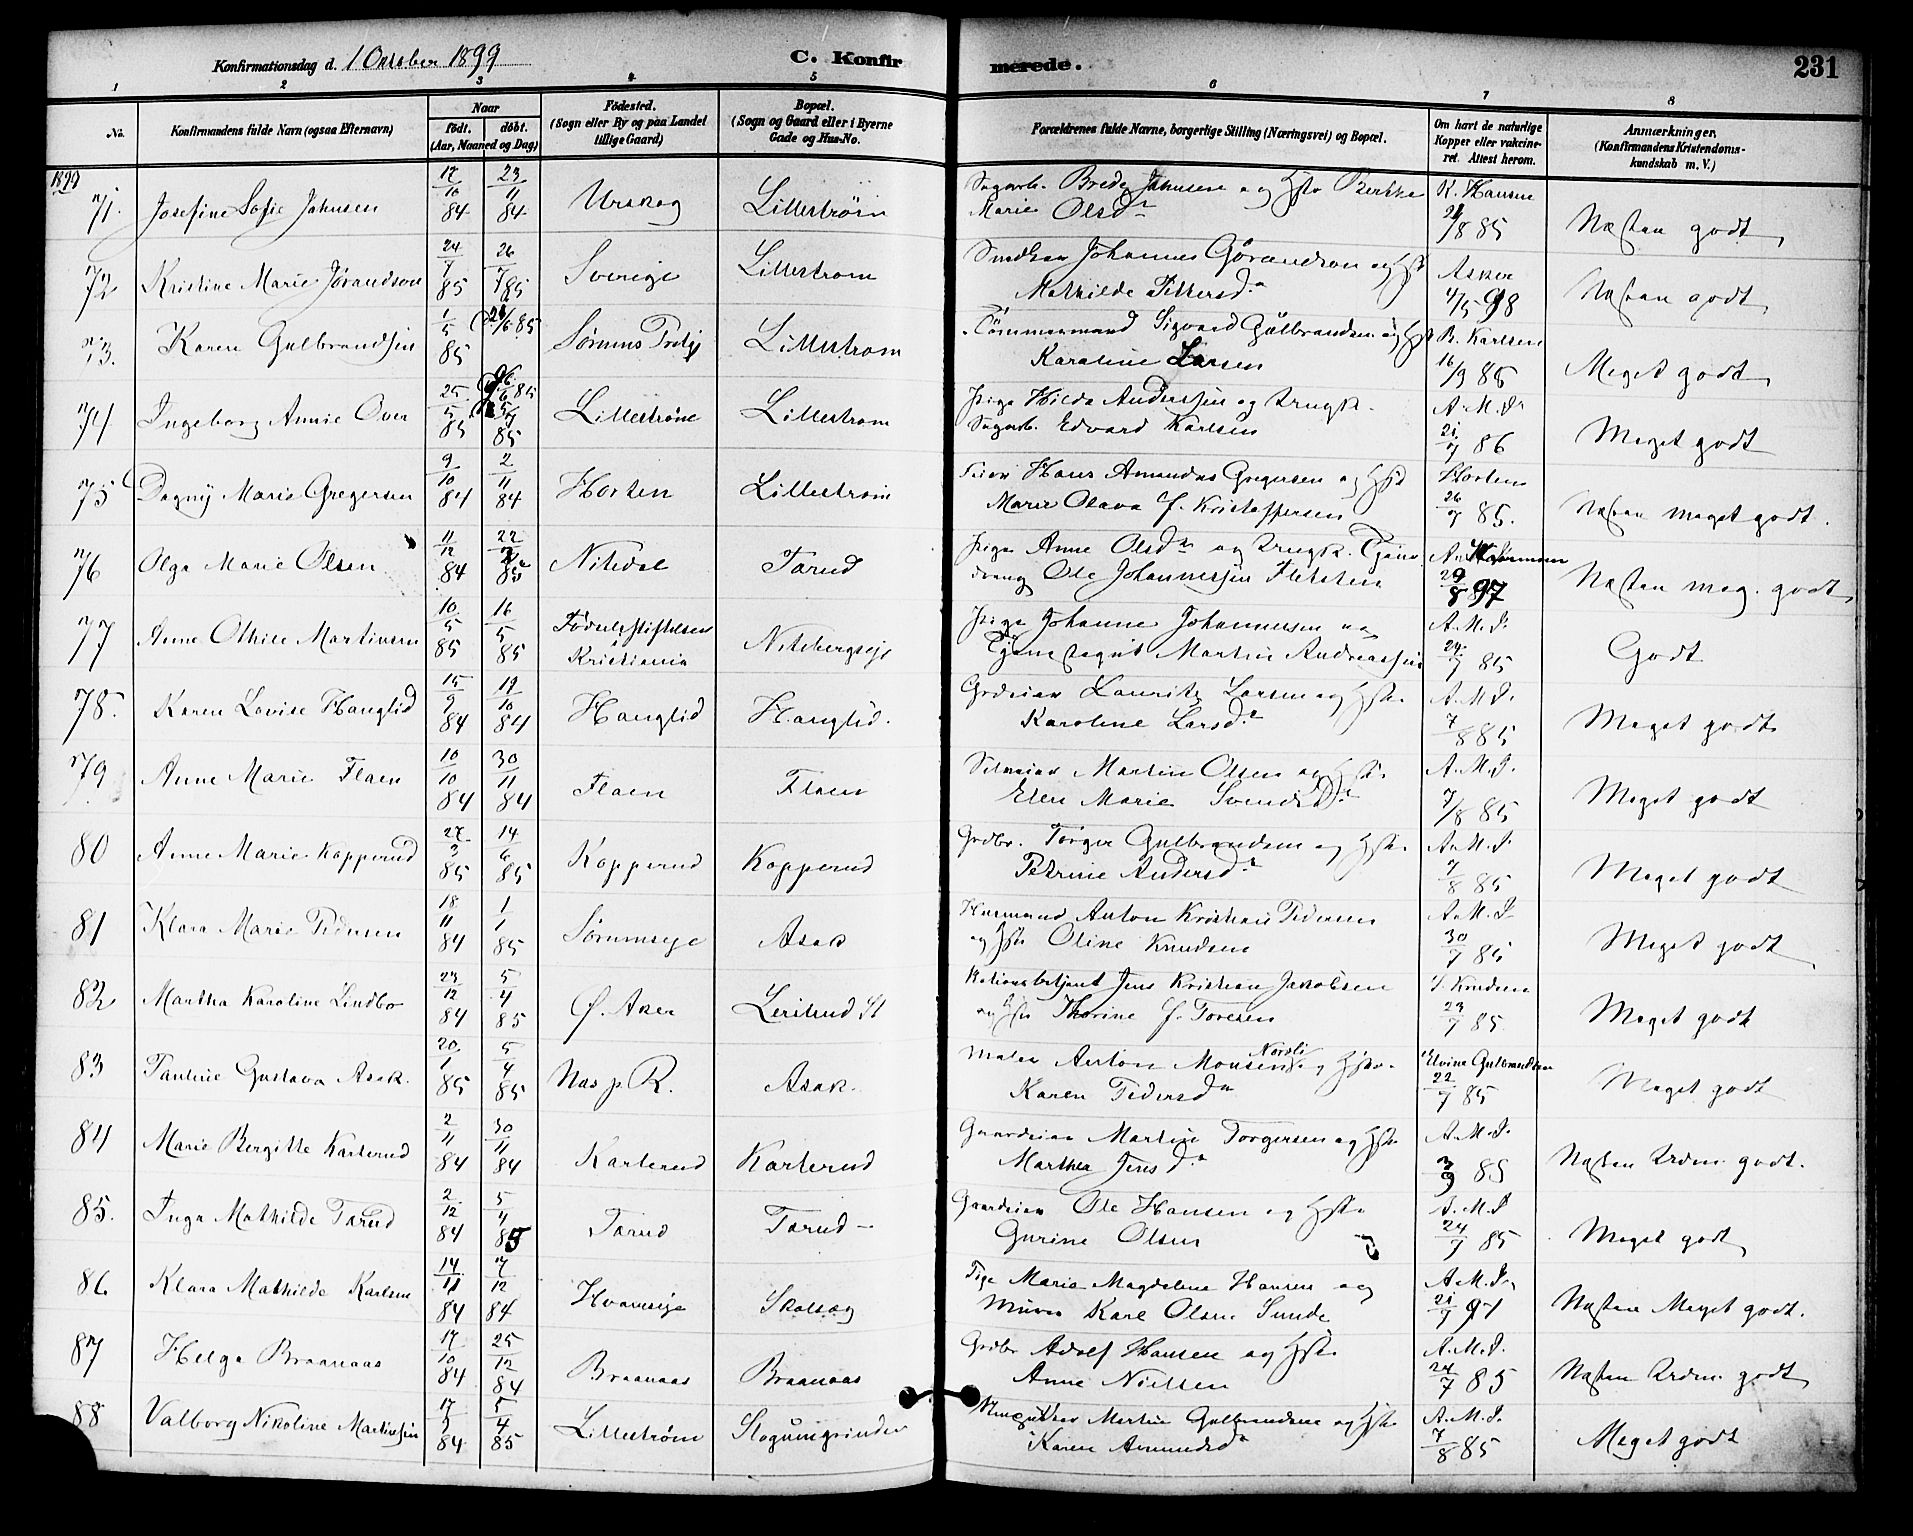 Konfirmationsdag d. 1 Oktober 1899
C. Konfirmerede.
231
1 2 3 4 5 6 7 8
No.
Konfirmandens fulde Navn (ogsaa Efternavn)
Naar
født. døbt.
(Aar, Maaned og Dag)
Fødested.
(Sogn eller By og paa Landet
tillige Gaard)
Bopæl.
(Sogn og Gaard eller i Byerne
Gade og Hus-No.
Forældrenes fulde Navne, borgerlige Stilling (Næringsvei) og Bopæl.
Om havt de naturlige
Kopper eller vakcine-
ret. Attest herom.
Anmærkninger.
(Konfirmandens Kristendoms-
kundskab m. V.)
1899
71. Josefine Sofie Johnsen 17/10 84 23/11 84 Urskog Lillestrøm Sagarb. Brede Johnsen og Hstr Berthe K. Hansen
Marie Olsd. 21/8 85 Næsten godt
72 Kristine Marie Jørandson 24/7 85 26/7 85 Sverige Lillestrøm Johannes Gørandson og Hstr Asker
Mathilde Pettersd. 4/5 98 Næsten godt
73. Karen Gulbrandsen 1/5 85 21/6 85 Sørums Lillestrøm Tømmermand Sigvard Gulbrandsen og Hstr B. Karlsen
Karoline Larsen 16/9 86 Meget godt
74. Ingeborg Annie Over 25/5 85 85 Lillestrøm Lillestrøm Pige Hilda Anderssen og Ungk. A.M.
Sagarb. Edvard Karlsen 21/7 86 Meget godt
75 Dagny Marie Gregersen 9/10 84 2/11 84 Horten Lillestrøm Hans Amandus Gregersen og Hstr Horten
Marie Olava f. Kristoffersen 26/7 85. Næsten meget godt.
76 Olga Marie Olsen 11/12 84 22/2 85 Nitedal Tærud Pige Anne Olsd. og Ungk. Tjene
dreng Ole Johannessen Fletten 29/8 97 Næsten meg. godt
77 Anne Othilie Martinsen 10/5 85 16/5 85 Fødselsstiftelsen
Kristiania Nitebergseje Pige Johanne Johannessen og A.M.J.
Tjenestegut Martin Andreassen 24/7 85 Godt
78. Karen Lovise Hanglid 15/9 84 19/10 84 Hanglid Hanglid. Grdeier Lauritz Larsen og Hstr. A.M.J.
Karoline Larsd. 7/8 85 Meget godt
79 Anne Marie Flaen 10/10 84 30/11 84 Flaen Flaen Selveier Martin Olsen og Hstr. A.M.J.
Elen Marie Svendsd. 7/8 85 Meget godt
80 Anne Marie Kopperud 27/3 85 14/6 85 Kopperud Kopperud Grdbr. Torger Gulbrandsen og Hstr. A.M.J.
Petrine Andersd. 7/8 85 Meget godt
81 Klara Marie Pedersen 18/11 84 1/1 85 Sørumseje Asak Husmand Anton Kristian Pedersen A.M.J.
og Hstr Oline Knudsen 30/7 85 Meget godt
82 Martha Karoline Lindbo 23/12 84 5/4 85 Ø. Aker Leirsund St Stationsbetjent Jens Kristian Jakobsen J. Knudsen
og Hstr Thorine f. Toresen 23/7 85 Meget godt
83 Pauline Gustava Asak. 20/1 85 5/4 85 Nes p. R. Asak. Maler Anton Monsen Nordli og Hstr. Elvine Gulbrandsen
Karen Pedersd. 22/7 85 Meget godt
84 Marie Bergitte Karterud 2/11 84 30/11 84 Karterud Karterud Gaardeier Martin Torgersen og Hstr. A.M.J.
Marthea Jensd. 3/9 85 Næsten udm. godt.
85. Inga Mathilde Tærud 2/12 84 5/4 85 Tærud Tærud Gaardeier Ole Hansen og Hstr A.M.J.
Gurine Olsen 24/7 85 Meget godt
86. Klara Mathilde Karlsen 14/11 84 7/12 84 Hvamseje Skolsæg Pige Maria Magdalene Hansen og A.M.J.
Murer Karl Olsen Sunde 21/7 91 Næsten Meget godt.
87 Helga Braanaas 17/10 84 25/12 84 Braanaas Braanaas Grdbr Adolf Hansen og Hstr. A.M.J.
Anne Nielsen 24/7 85 Næsten udm. godt
88 Valborg Nikoline Martinsen 17/ 84 5/4 85 Lillestrøm Martin Gulbrandsen og Hstr. A.M.J.
Karen Amundsd. 7/8 85 Meget godt